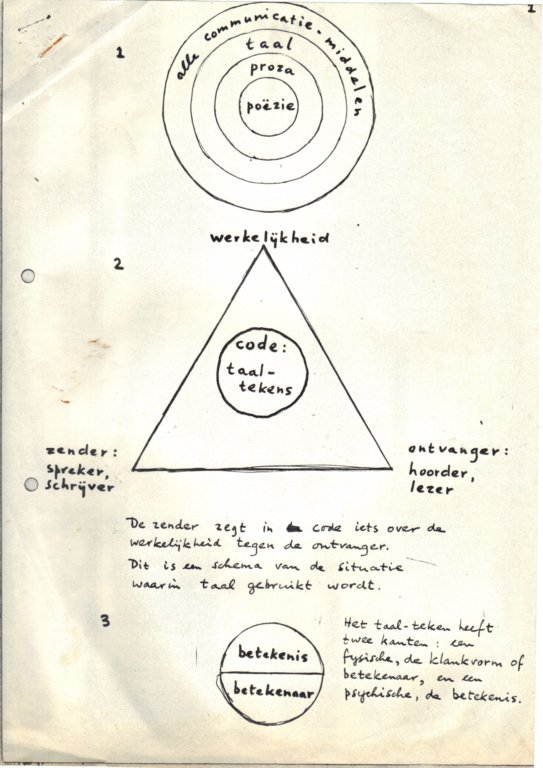 1
1
alle communicatie-middelen
taal
proza
poëzie
2
werkelijkheid
code:
taal-
tekens
zender:
spreker,
schrijver
ontvanger:
hoorder,
lezer
De zender zegt in code iets over de
werkelijkheid tegen de ontvanger.
Dit is een schema van de situatie
waarin taal gebruikt wordt.
3
betekenis
betekenaar
Het taal-teken heeft
twee kanten: een
fysische, de klankvorm of
betekenaar, en een
psychische, de betekenis.